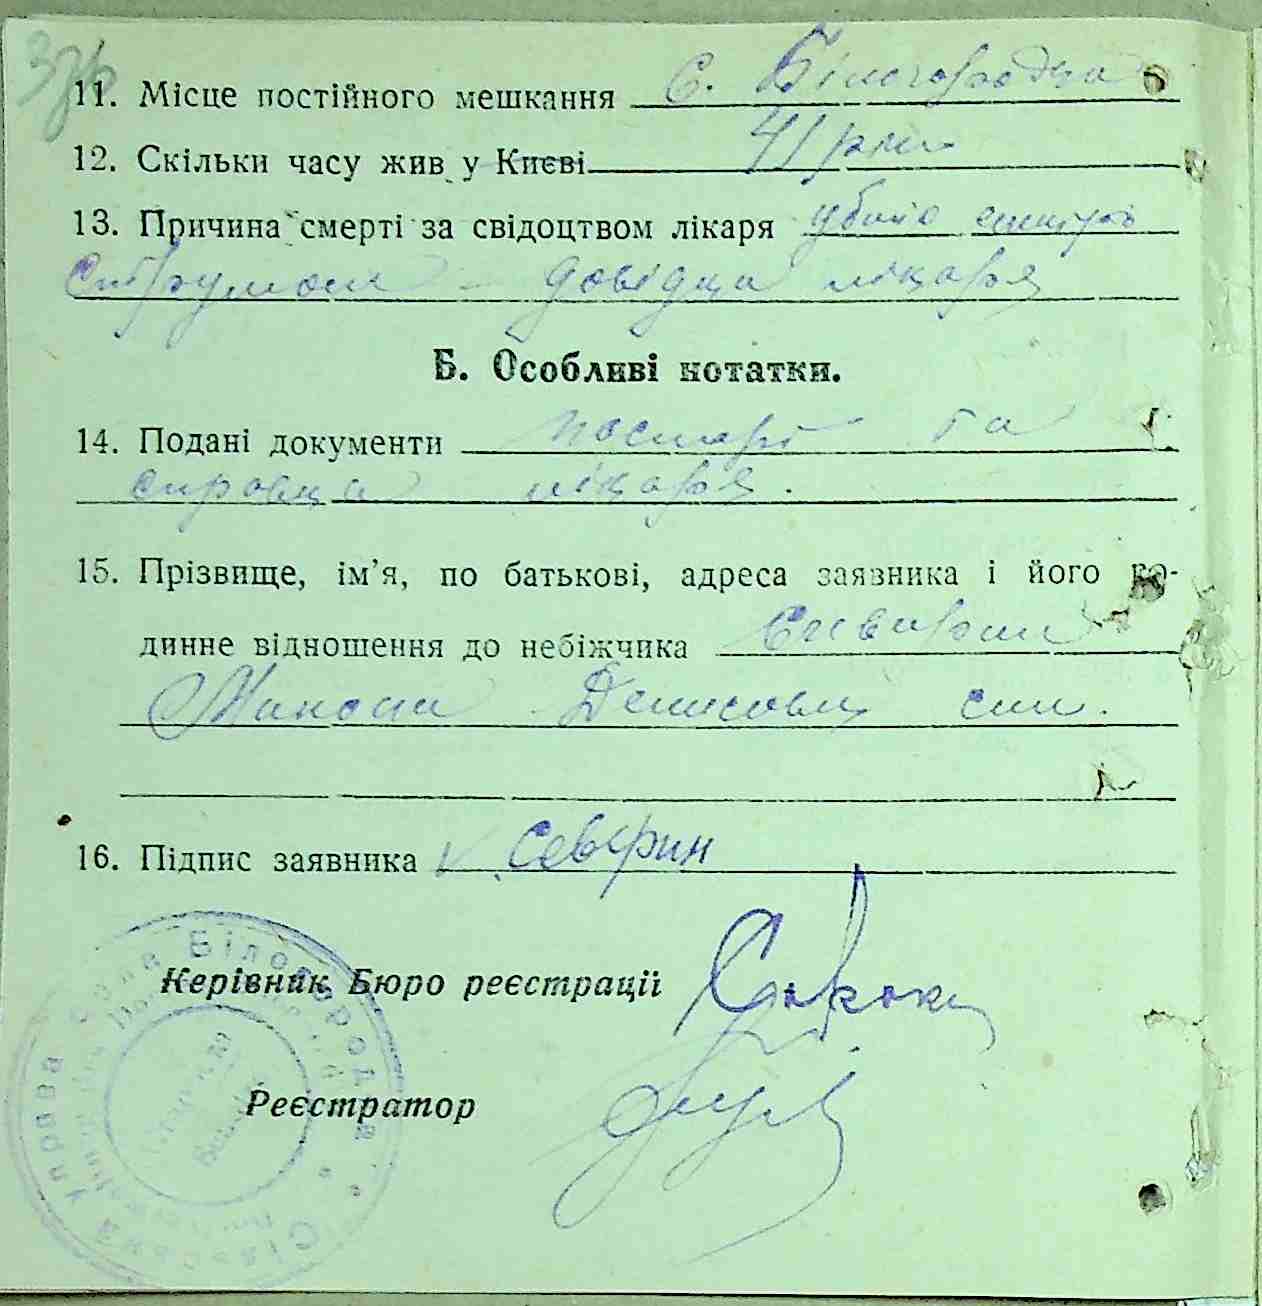 37
11. Місце постійного мешкання с. Білогородка
12. Скільки часу жив у Києві 41 рік
13. Причина смерті за свідоцтвом лікаря
струмом - довідка лікаря
Б. Особливі нотатки.
14. Подані документи паспорт та
справка лікаря.
15. Прізвище, ім'я, по батькові, адреса заявника і його ро-
динне відношення до небіжчика Сиверин
Микола Денисович син.
16. Підпис заявника Северин
Керівник Бюро реєстрації
Реєстратор
Сільська управа села Білогородка